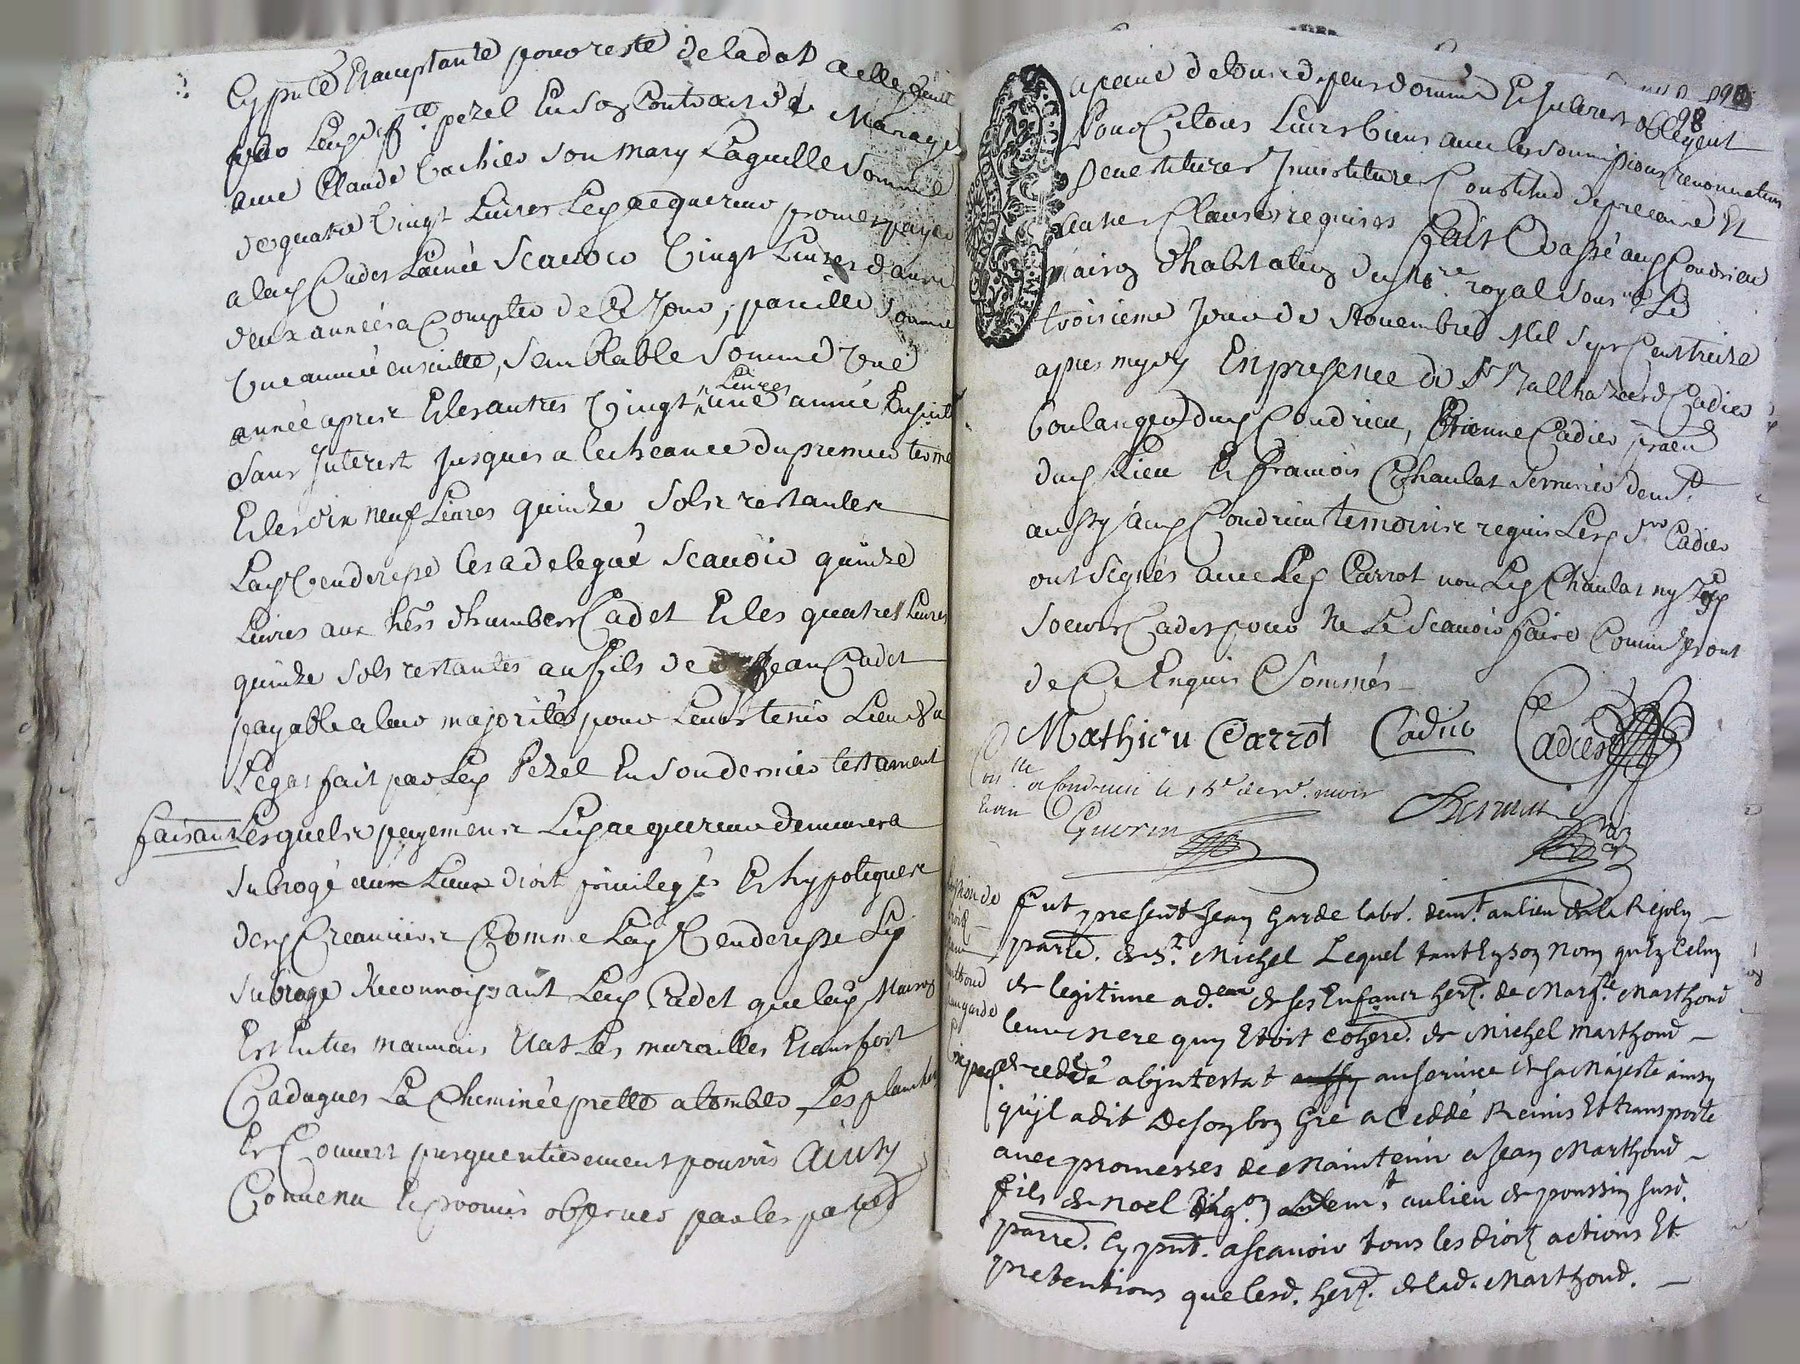 Cy pnte Et acceptante pour reste de la dot a elle faitte
par Leud. Pezel En son Contract de Mariage
avec Claude Cachier son mary Laquelle somme
de quatre Vingt Livres Led. acquereur promet payer
a lad. Cadet L'ainée Scavoir Vingt Livres dans
deux années a Compter de Ce Jour, pareille somme
Une année ensuitte, semblable somme Une
année apres Et les autres Vingt Livres une année Ensuitte
sans Interest Jusques a lecheance du premier terme
Et les dix neuf Livres quinze sols restantes
Lad. Venderesse les a delegué Scavoir quinze
Livres aux hers d'humbert Cadet Et les quatre Livres
quinze sols restantes au fils de Jean Cadet
payable a leur majorité pour Leur tenir Lieu du
Legat fait par Led. Pezel En son dernier testament
faisant Lesquels payements Led. acquereur demeurera
subrogé aux Lieux droit privileges Et hypoteques
desd. Creanciers Comme Lad. Venderesse L'y
subroge Reconnoissant Led. Cadet que lad. Maison
Est En tres mauvais Etat Les murailles Etant fort
Caduques La Cheminée prette a tomber, Les planchers
Et Couvert presqu'entierement pourris ainsy
Convenu Et promis observer par les parties
98
a peine de tous depens dommes Et Interets obligent
Pour Ce tous Leurs biens avec les soumissions renonciations
Devestitures Investitures Constitut de precaire Et
autres Clauses requises fait Et passé aud. Condrieu
maison d'habitation du nore royal sousné Le
troisieme Jour de Novembre Mil Sept Cent treize
apres mydy En presence de Sr Balthazard Cadier
boulanger dud. Condrieu, Etienne Cadier
dud. Lieu Et François Chaulat serrurier demt
aussy aud. Condrieu temoins requis Lesd. Srs Cadier
ont signés avec Led. Carrot non Led. Chaulat ny Lesd.
soeurs Cadet pour Ne Le Scavoir faire Comme Ils ont
de Ce Enquis Et Sommés
Mathieu Carrot Cadier Cadier
Conllé a Condrieu le 15e desd. mois
Et an Guerin
fut present Jean Garde labr. demt. au lieu de la Rejoly
parre. de St. Michel Lequel tant En son Nom qu'En Celuy
de legitime ad.eur de ses Enfans hers. de Margte. Marthoud
leur Mere quy Etoit cohere. de Michel Marthoud
decedé abintestat au service de sa Majesté ainsy
qu'il a dit De son bon Gré a Ceddé Remis Et transporté
avec promesses de Maintenir a Jean Marthoud
fils de Noel demt. au lieu de poussin susd.
parre. Cy pnt. ascavoir tous les droits actions Et
pretentions que lesd. hers. de lad. Marthoud.